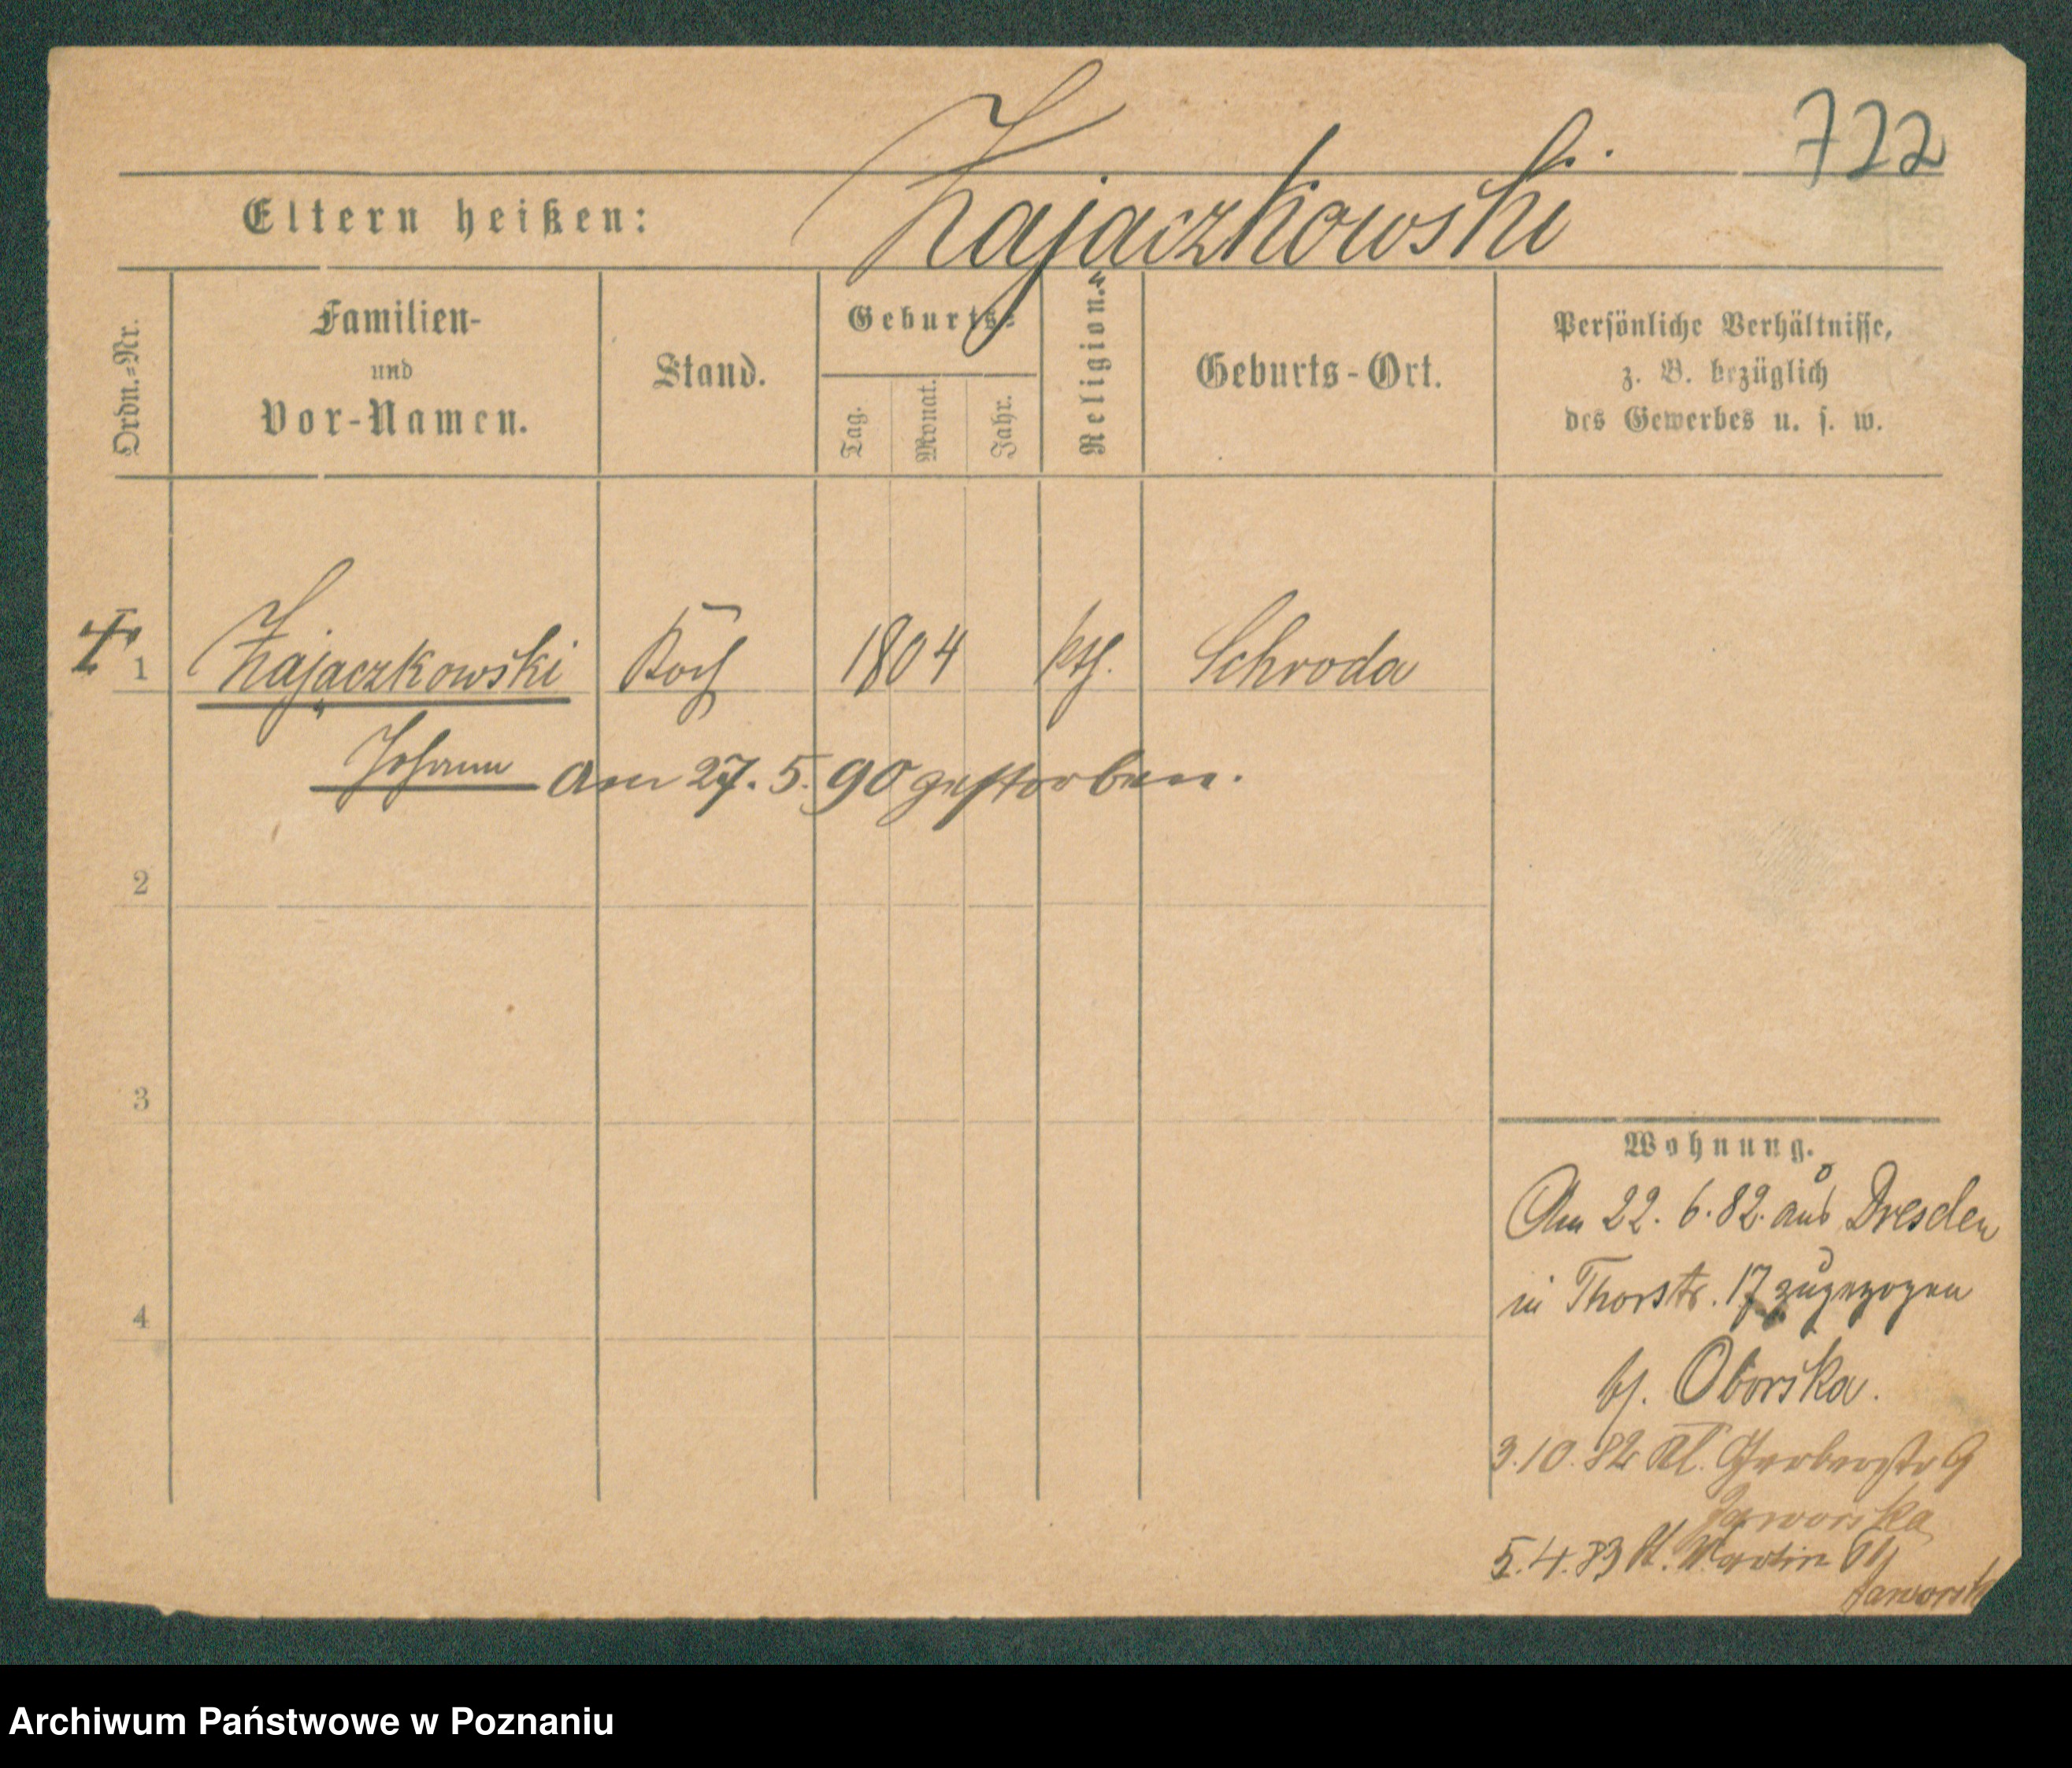 722
Eltern heißen: Zajaczkowski
Ordn.=Nr.
Familien-
und
Vor-Namen.
Stand.
Geburts=
Tag.
Monat.
Jahr.
Religion.
Geburts-Ort.
Persönliche Verhältnisse,
z. B. bezüglich
des Gewerbes u. s. w.
1 Zajączkowski Koch 1804 kth. Schroda
Johann am 27. 5. 90 gestorben.
2
3
4
Wohnung.
Am 22. 6. 82. aus Dresden
in Thorstr. 17 zugezogen
bj. Oborska.
3.10.82 Kl. Gerberstr 9
Jaworska
5.4.83 St. Martin
Jaworsk
Archiwum Państwowe w Poznaniu